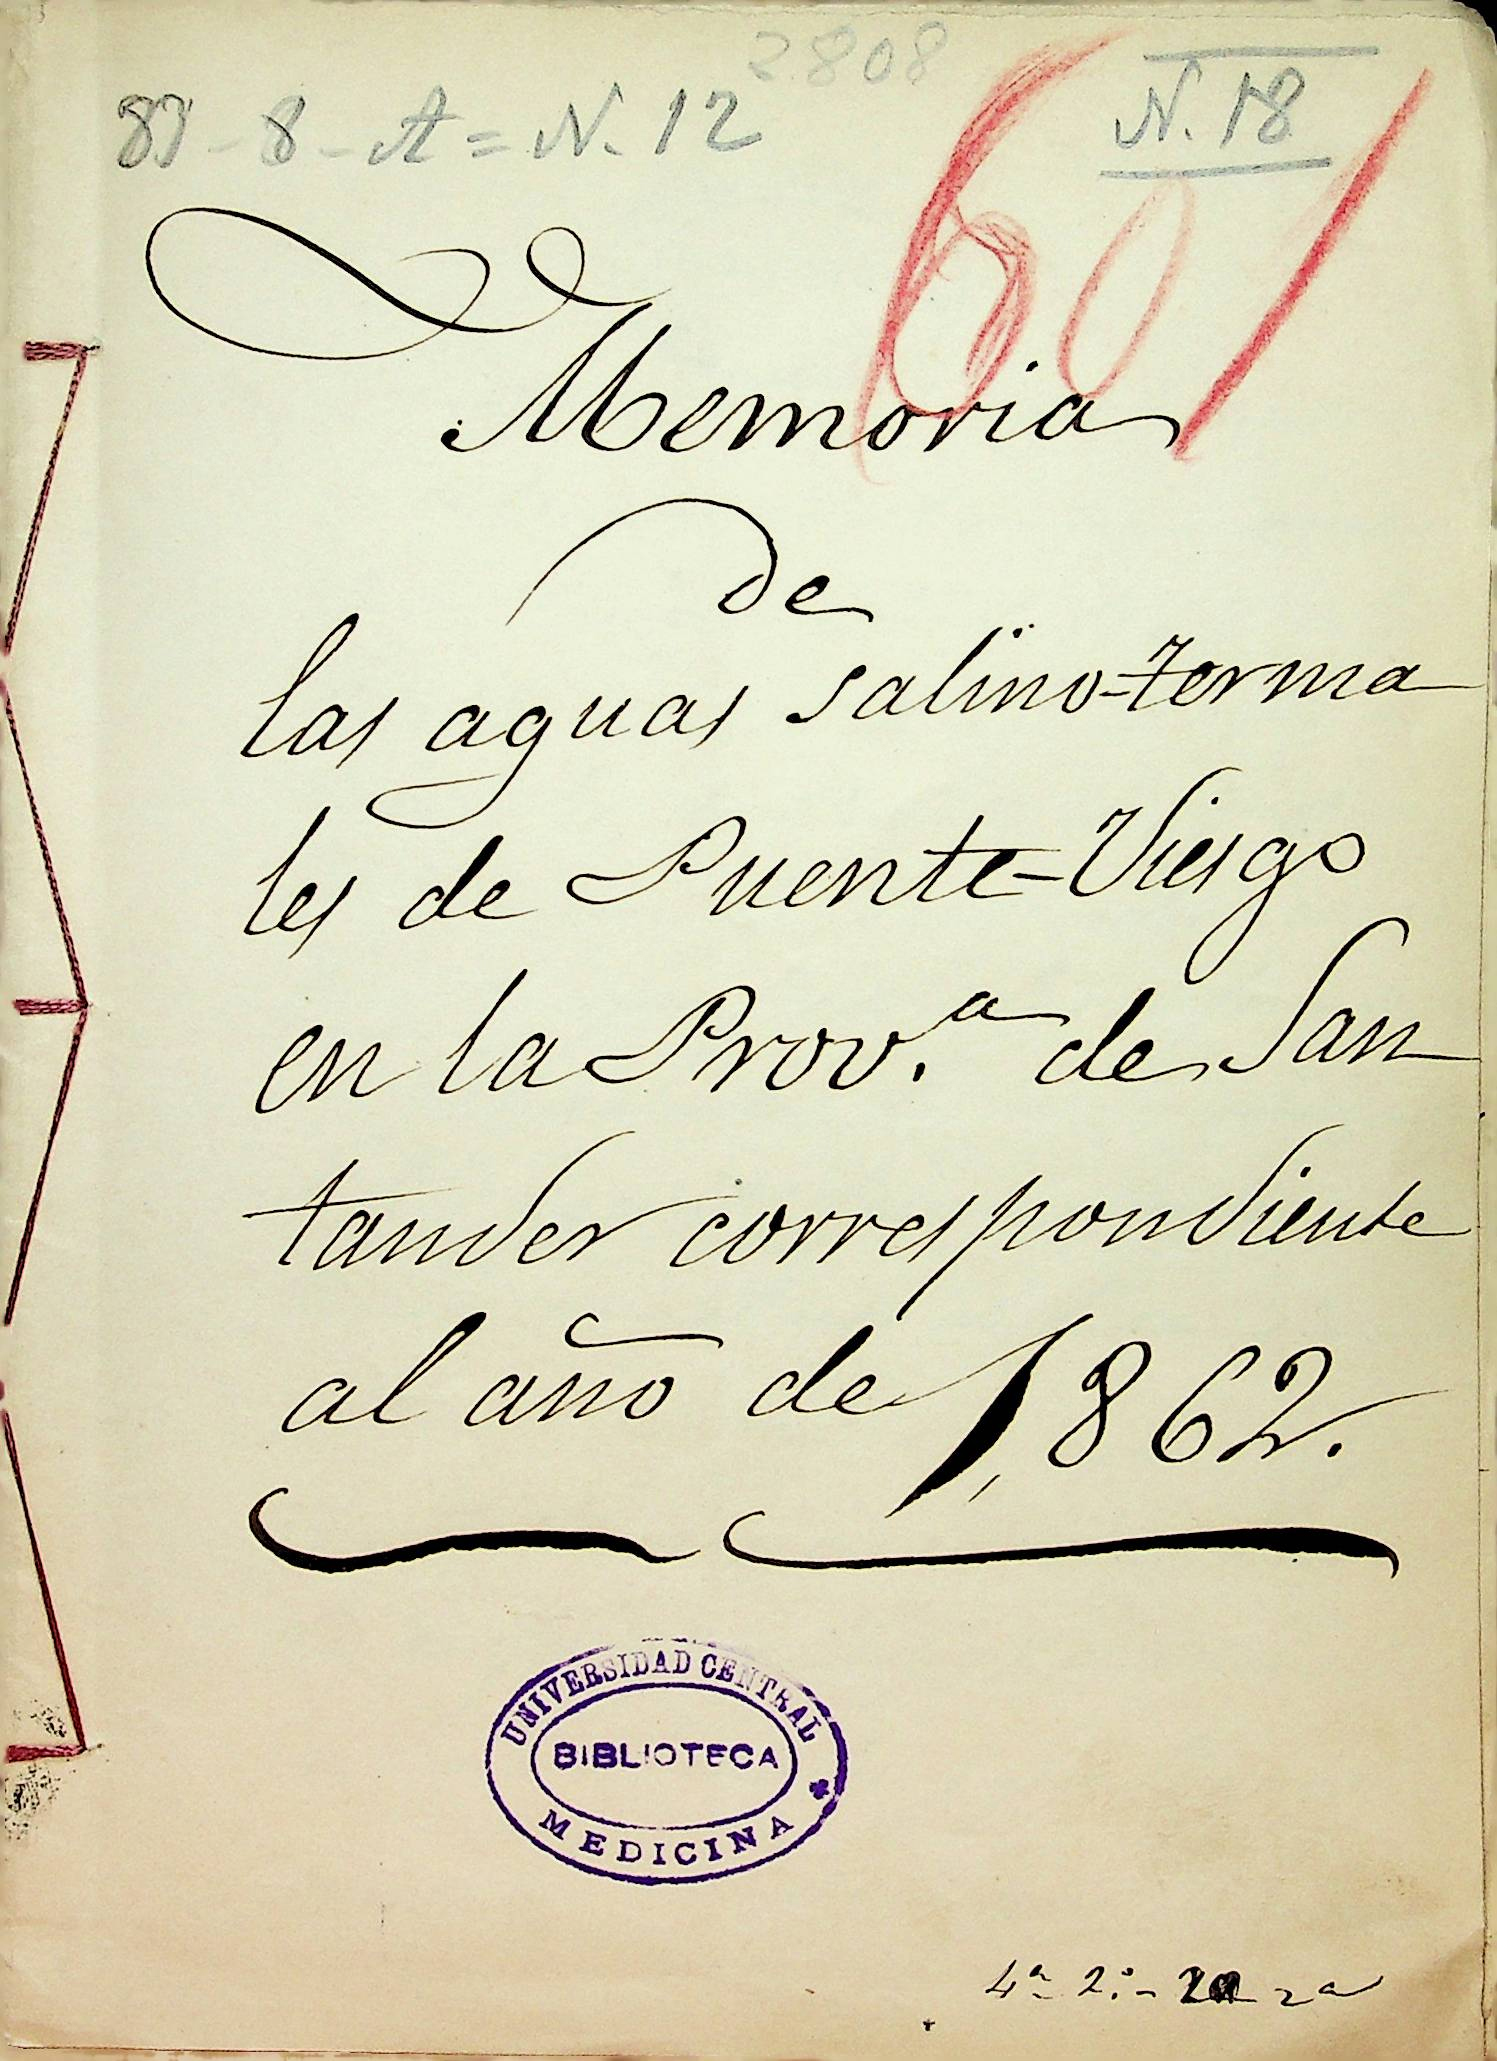 2808
83-8-A=N.12
N. 18
601
Memoria
de
las aguas salino-terma
les de Puente-Viesgo
en la Prov.ª de San
tander correspondiente
al año de 1862.
UNIVERSIDAD CENTRAL
BIBLIOTECA
MEDICINA
4ª 2.º